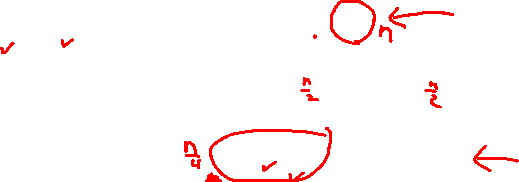 n
n/2 n/2
n/4